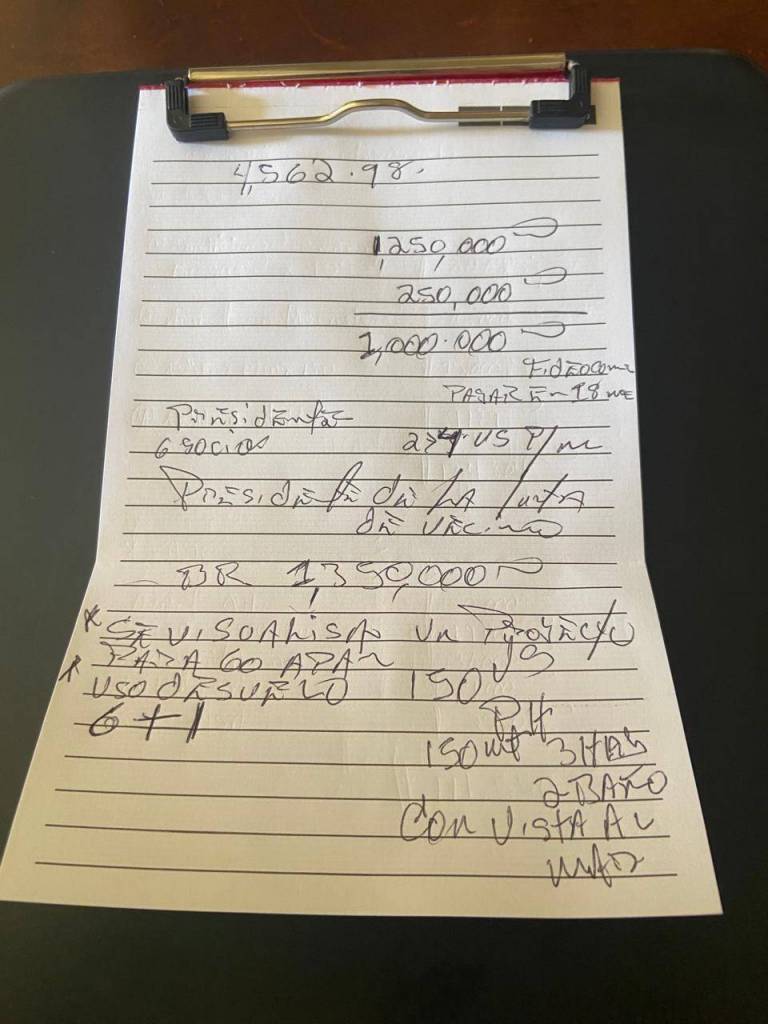 4,562.98.
1,250,000
250,000
1,000.000
FidEocom
PAGARE 18 ME
PrESidEntE
6 SOCiOS US P/m
PrESidEntE dE LA JuntA
dE VECinO
BR 1,350,000
* SE VISUALISA Un ProYECtO
* PARA 60 APAR
USO dE SUELO 150 US
6+1 PH
150 mt 3 HAb
2 BAÑO
Con VistA AL
MAR